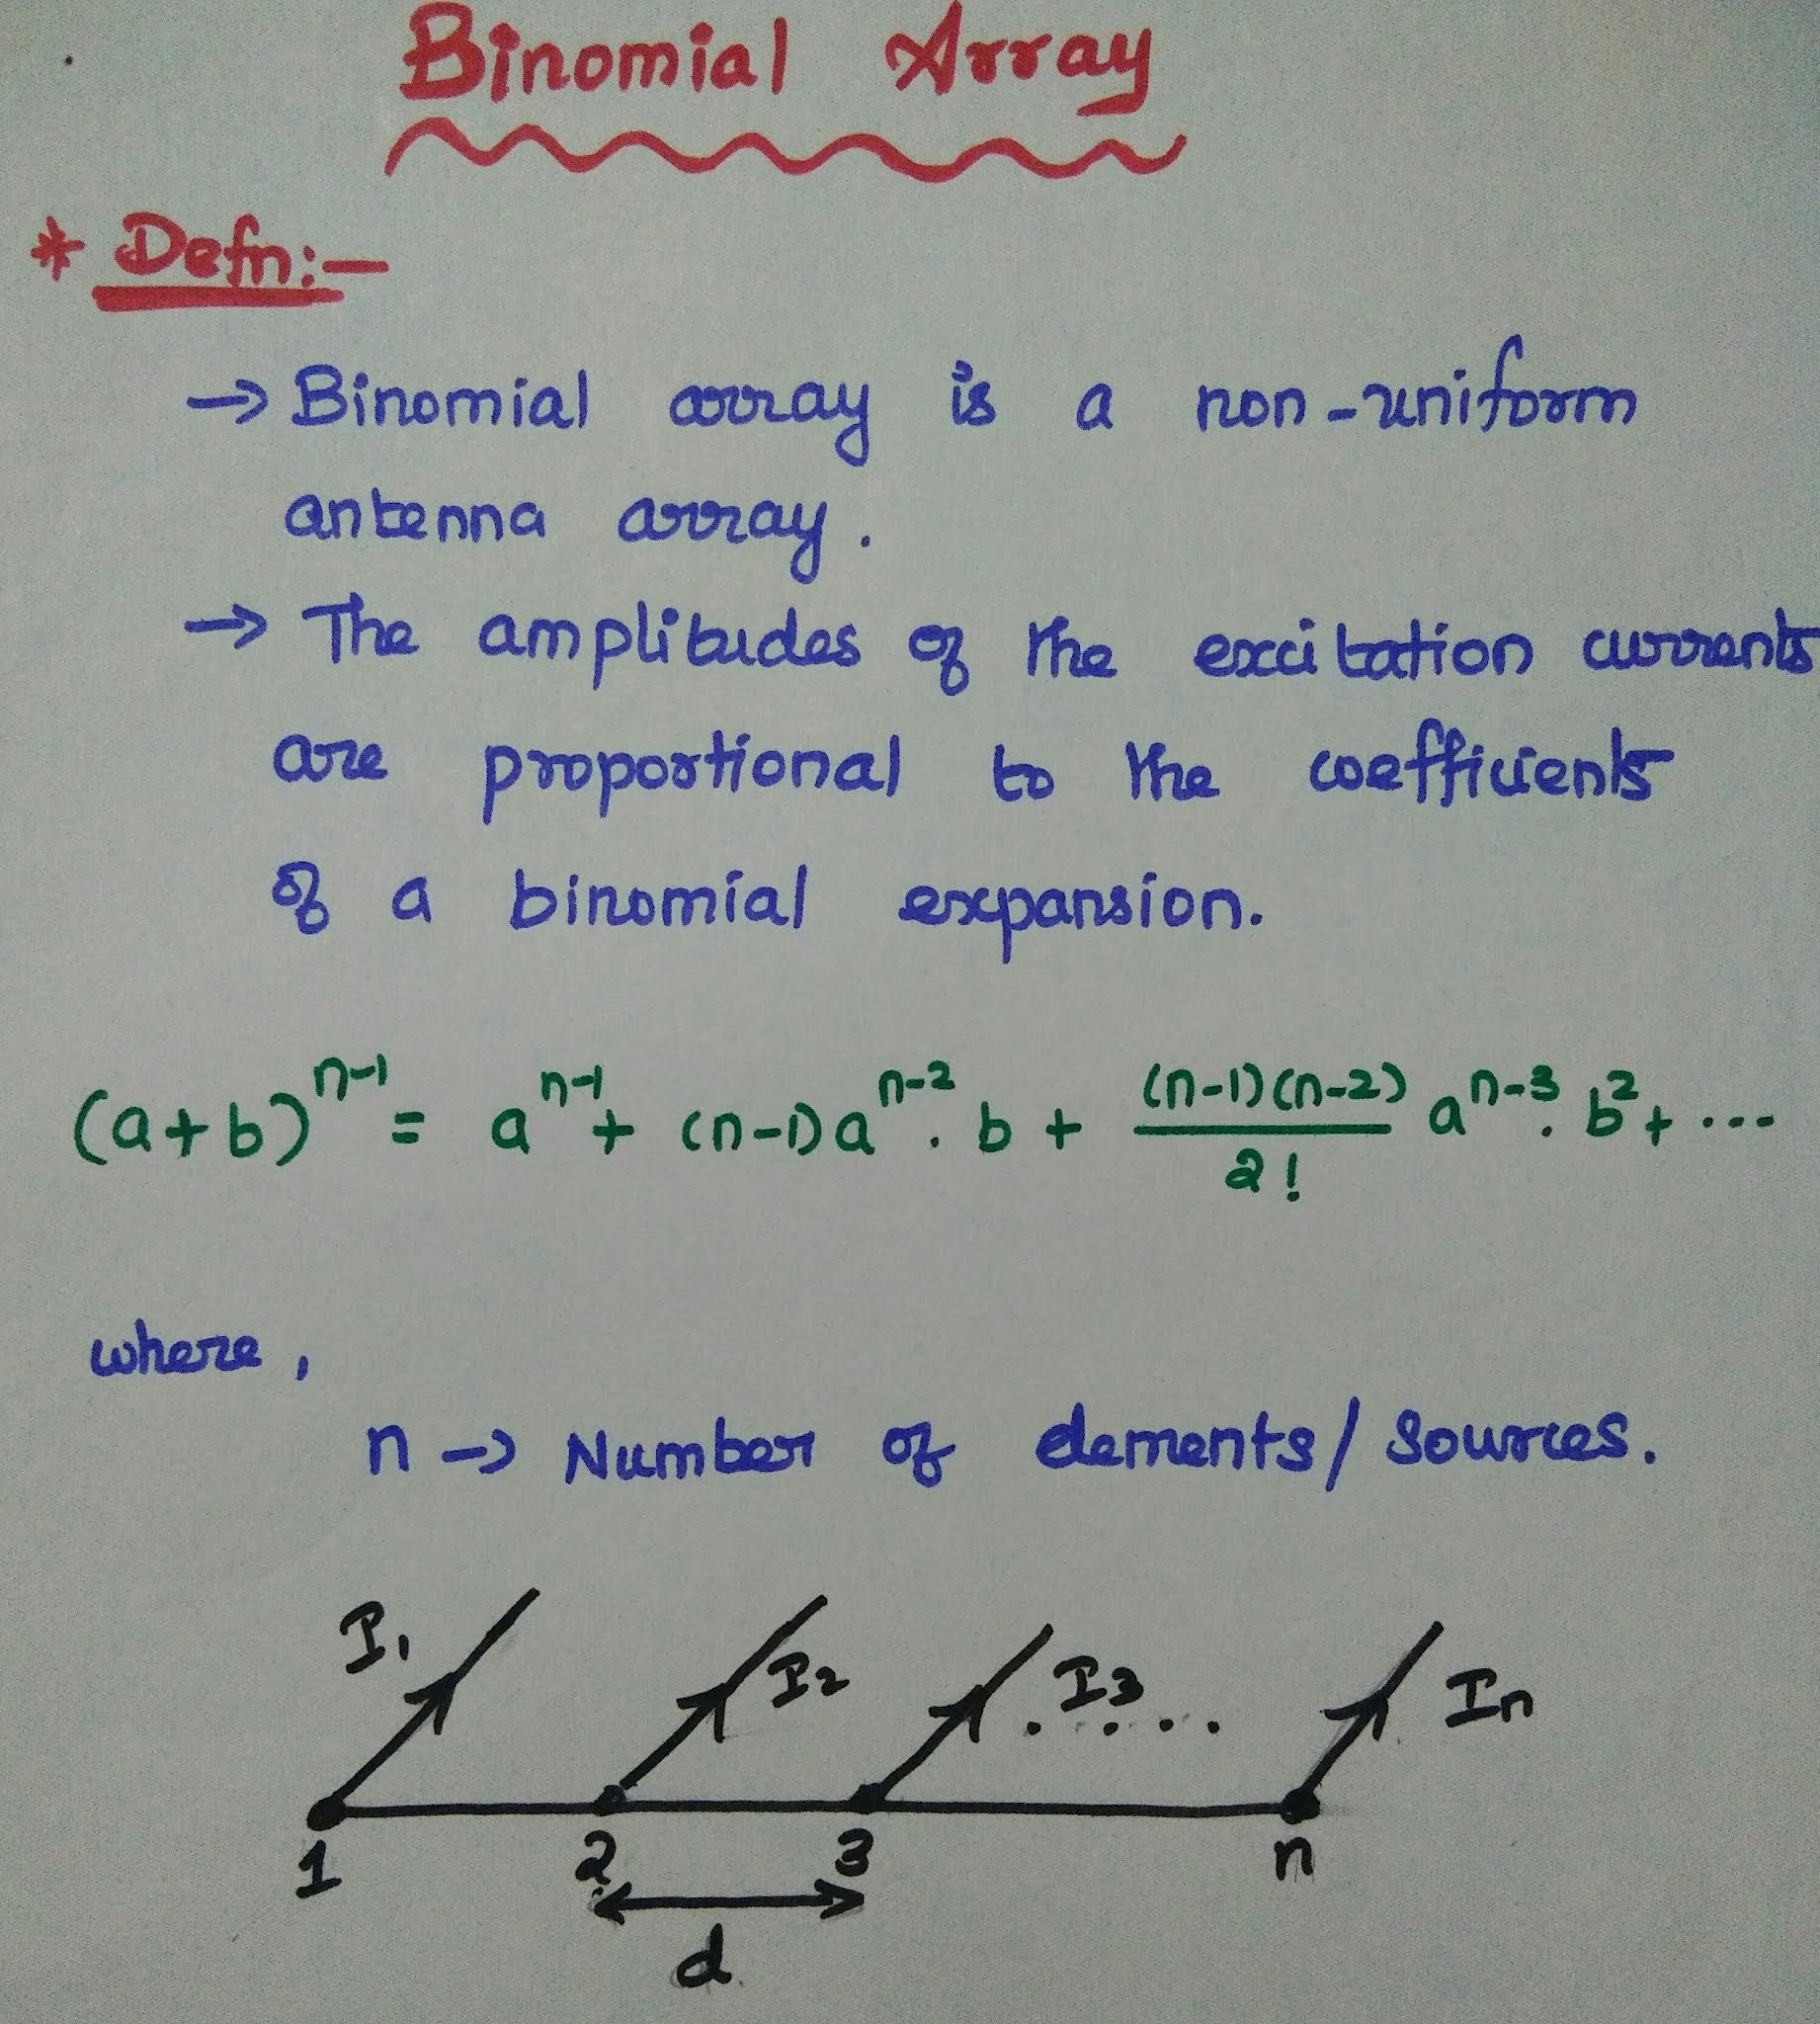 Binomial Array
* Defn:-
→ Binomial array is a non-uniform
antenna array.
→ The amplitudes of the excitation currents
are proportional to the coefficients
of a binomial expansion.
(a+b)^{n-1} = a^{n-1} + (n-1)a^{n-2}.b + \frac{(n-1)(n-2)}{2!} a^{n-3}.b^2 + ...
where,
n → Number of elements/sources.
I₁ I₂ I₃ ..... Iₙ
1 2 3 n
d